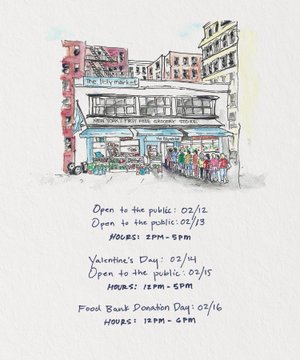 The Polymarket
NEW YORK'S FIRST FREE GROCERY STORE
The Polymarket
Open to the public: 02/12
Open to the public: 02/13
HOURS: 2PM-5PM
Valentine's Day: 02/14
Open to the public: 02/15
HOURS: 12PM-5PM
Food Bank Donation Day: 02/16
HOURS: 12PM-6PM